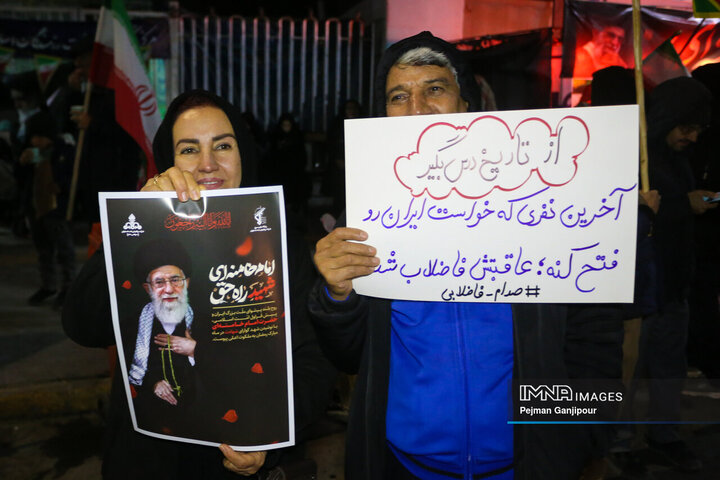 انا لله و انا الیه راجعون
امام خامنه‌ای
شهید راه حق
از تاریخ درس بگیر
آخرین نفری که خواست ایران رو
فتح کنه؛ عاقبتش فاضلاب شد
#صدام_فاضلابی
IMNA IMAGES
Pejman Ganjipour